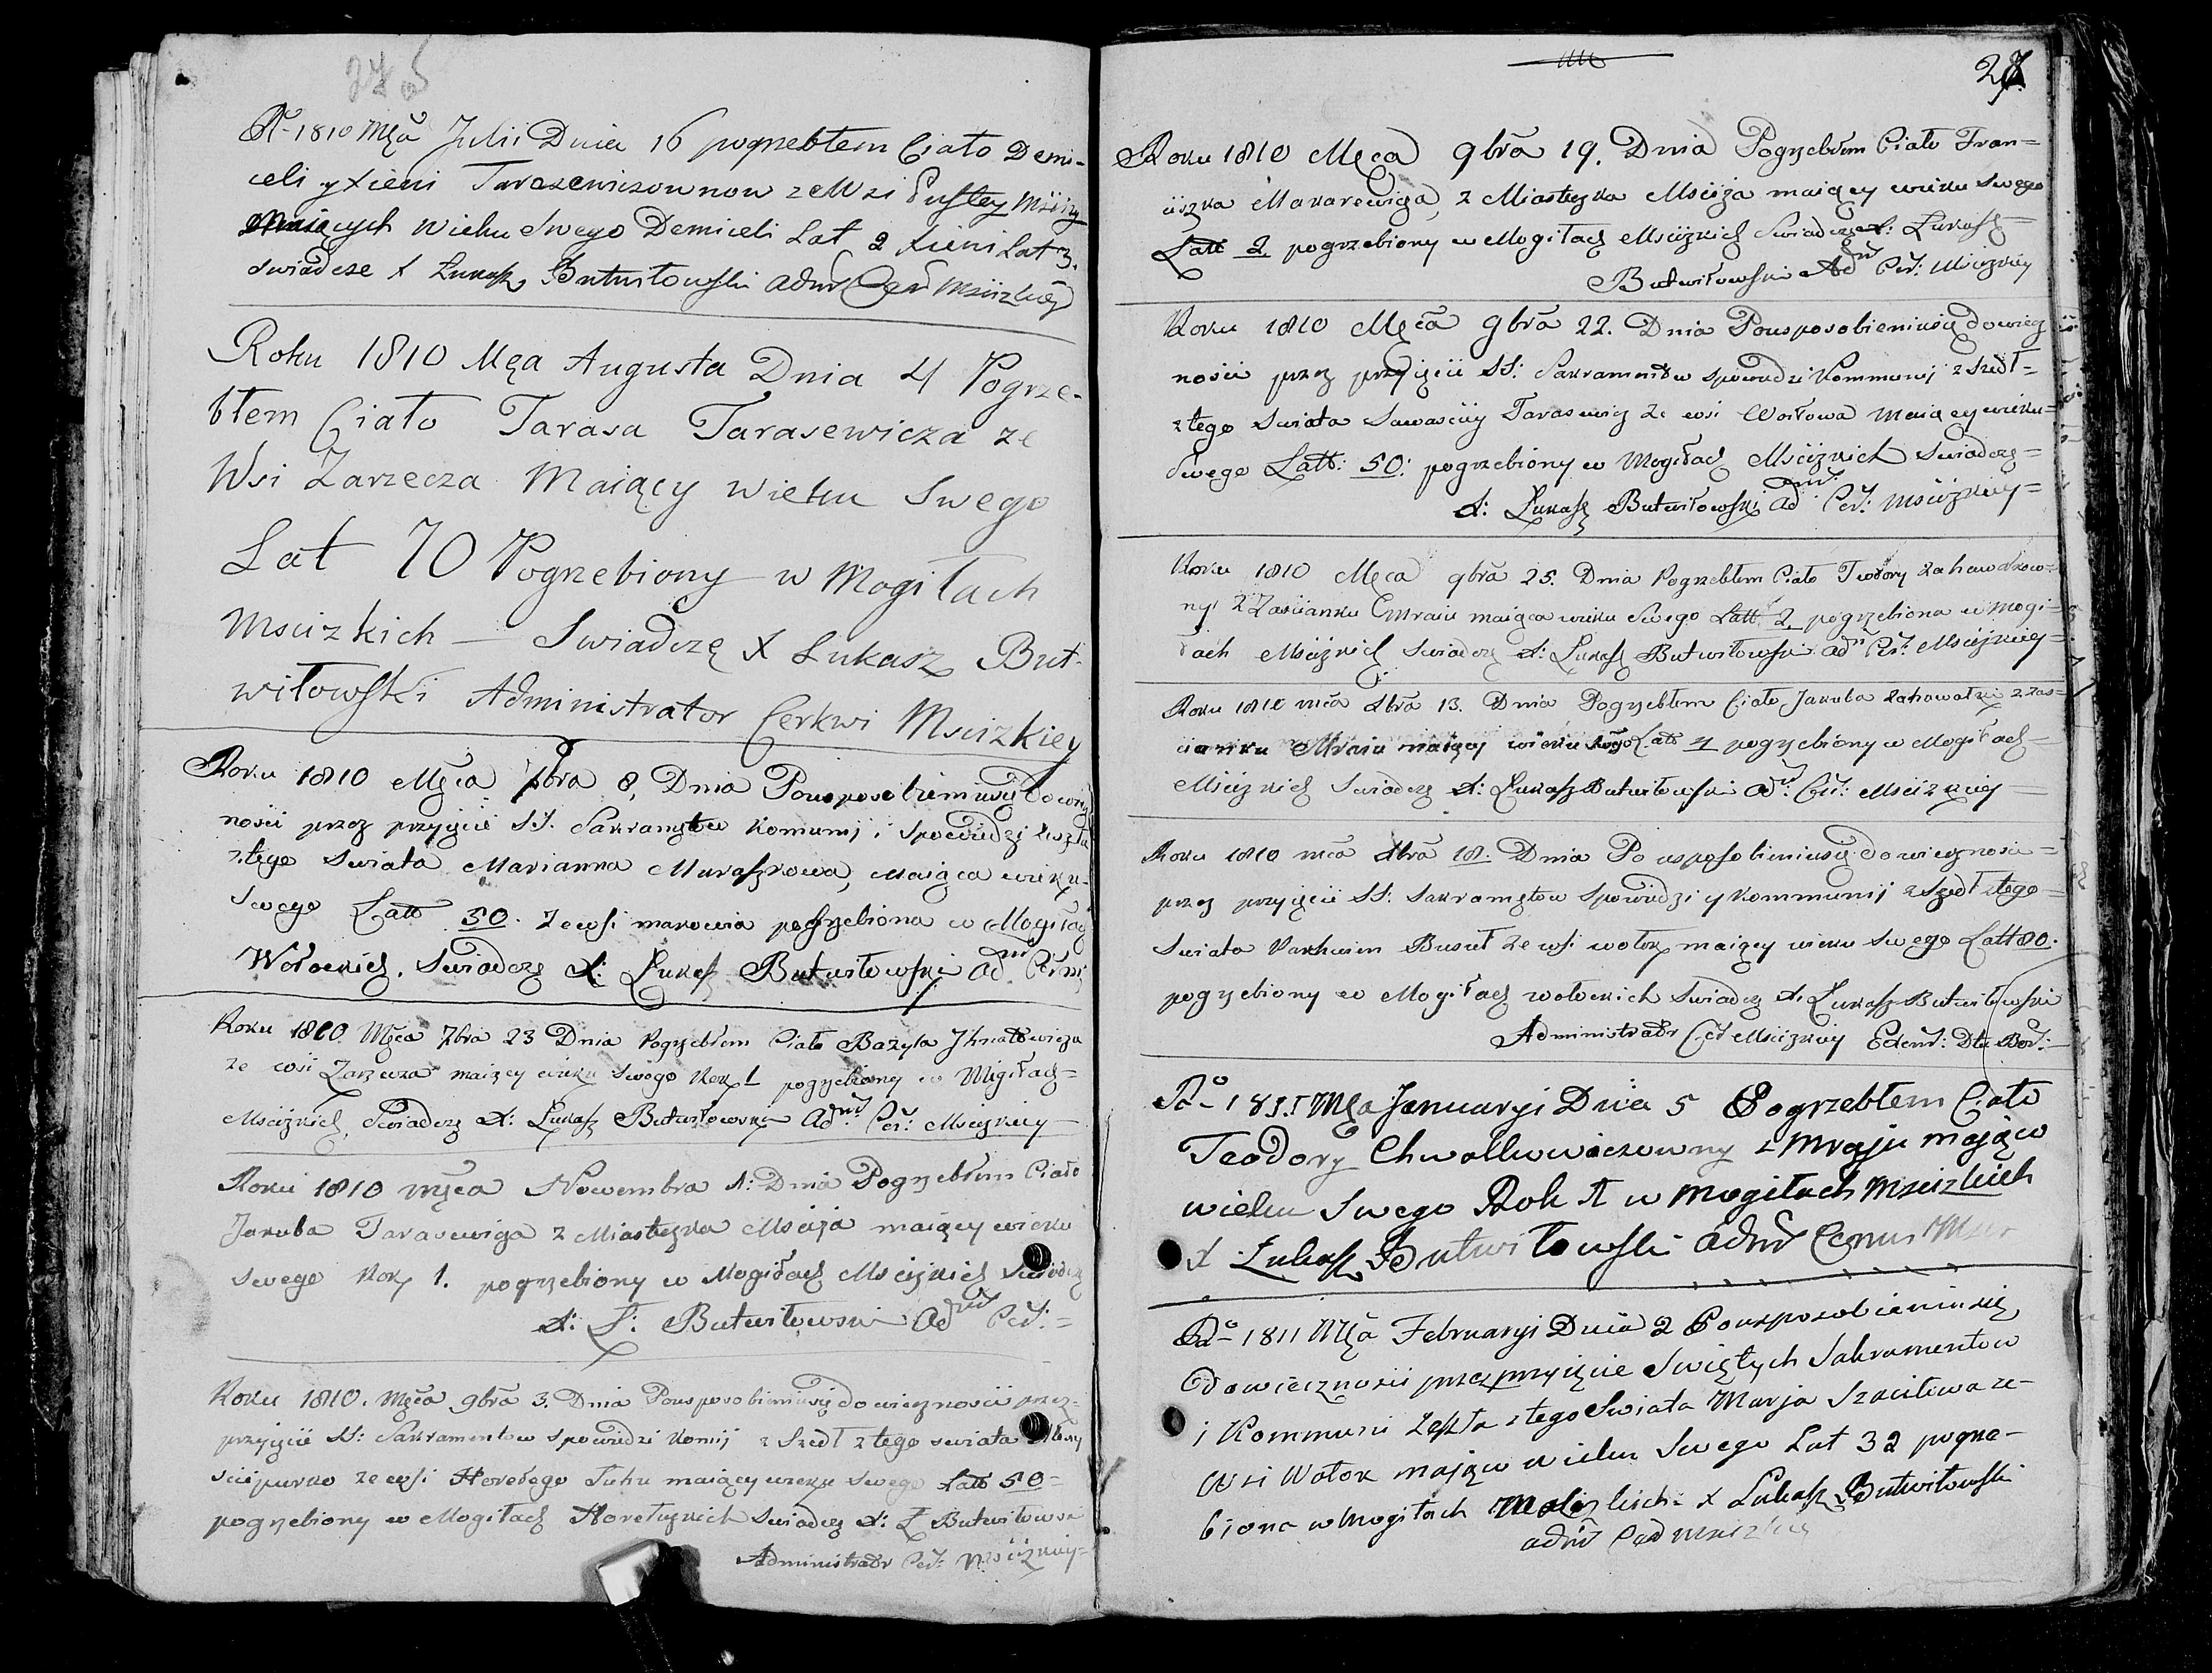 27 об
R. 1810 Mca Julii Dnia 16 pogrzebłem Ciało Demi-
celi y Xieni Tarasewiczownow ze Wsi Pustey Mściży
Maiących Wieku Swego Demiceli Lat 2 Xieni Lat 3.
Swiadcze X Łukasz Butwiłowski Admr Cer Mscizkiey
Roku 1810 Mca Augusta Dnia 4 Pogrze-
błem Ciało Tarasa Tarasewicza ze
Wsi Zarzecza Maiący Wieku Swego
Lat 70 Pogrzebiony w Mogiłach
Mscizkich — Swiadczę X Łukasz But-
wiłowski Administrator Cerkwi Mscizkiey
Roku 1810 Męca 7bra 8. Dnia Pousposobieniusię do wiecz
ności przez przyięcie S.S. Sakramętow Komunij i Spowiedzi zeszła
z tego Swiata Marianna Muraszkowa, Maiąca wieku
Swego Latt 50. Ze wsi makowia pogrzebiona w Mogiłach
Wołockich. Swiadczę X: Łukasz Butwiłowski Adm
Roku 1810 Męca 7bra 23 Dnia Pogrzebłem Ciało Bazyla Ihnatowicza
ze wsi Zarzecza maiący wieku Swego Rok 1 pogrzebiony w Mogiłach
Mscizkich, Swiadczę X: Łukasz Butwiłowski Adm: Cer: Mscizkiey
Roku 1810 Męca Nowembra 1: Dnia Pogrzebłem Ciało
Jakuba Tarasewicza z Miasteczka Mściża maiący wieku
Swego Rok 1. pogrzebiony w Mogiłach Mscizkich Swiadczę
X: Ł: Butwiłowski Adm Cer: =
Roku 1810. Męca 9bra 3. Dnia Pousposobieniusię do wieczności przez
przyięcie SS: Sakramentow Spowiedzi Komij z Szedł z tego swiata
ze wsi Horełego Łuhu maiący wieku Swego Latt 50 =
pogrzebiony w Mogiłach Horełuzkich Swiadczę X: Ł Butwiłowski
Administrator Cer: Mscizkiey =
27
Roku 1810 Męca 9bra 19. Dnia Pogrzebłem Ciało Fran=
ciszka Makarewicza, z Miasteczka Mściża maiący wieku Swego
Latt 2 pogrzebiony w Mogiłach Mscizkich Swiadczę X: Łukasz
Butwiłowski Adm Cer: Mscizkiey
Roku 1810 Męca 9bra 22. Dnia Pousposobieniusię do wiecz
ności przez przyięcie SS: Sakramentow Spowiedzi Kommunij z Szedł =
z tego Swiata Tarasewicz ze wsi Wołowa maiący wieku =
Swego Latt: 50: pogrzebiony w Mogiłach Mscizkich Swiadczę =
X: Łukasz Butwiłowski Adm: Cer: Mscizkiey =
Roku 1810 Męca 9bra 25. Dnia Pogrzebłem Ciało Teodory Zahawalkow=
ny z Zascianku Mraiu maiąca wieku Swego Latt 2 pogrzebiona w Mogi=
łach Mscizkich Swiadczę X: Łukasz Butwiłowski Adm Cer: Mscizkiey =
Roku 1810 mca Xbra 13. Dnia Pogrzebłem Ciało Jakuba Zahowalki z Zas=
cianku Mraiu maiący wieku Swego Latt 4 pogrzebiony w Mogiłach
Mscizkich Swiadczę X: Łukasz Butwiłowski Adm: Cer: Mscizkiey
Roku 1810 mca Xbra 18. Dnia Po usposobieniusię do wieczności =
przez przyięcie SS: Sakramętow Spowiedzi y Kommunij z Szedł z tego =
Swiata Buseł ze wsi wołok maiący wieku Swego Latt 80.
pogrzebiony w Mogiłach wołockich Swiadczę X. Łukasz Butwiłowski
Administrator Cer Mscizkiey
Ro 1811 Mca Januaryi Dnia 5 Pogrzebłem Ciało
Teodory z Mraju mająca
wieku Swego Rok 1 w Mogiłach Mscizkich
X Łukasz Butwiłowski Admr
Ro 1811 Mca Februaryi Dnia 2 Pousposobieniusię
do wiecznosci przez przyięcie Swiętych Sakramentow
i Kommuni Zeszła z tego Swiata Marja Szacitowa ze
Wsi Wołok mająca wieku Swego Lat 32 pogrze-
biona w Mogiłach X Łukasz Butwiłowski
admr Cer Mscizkiey